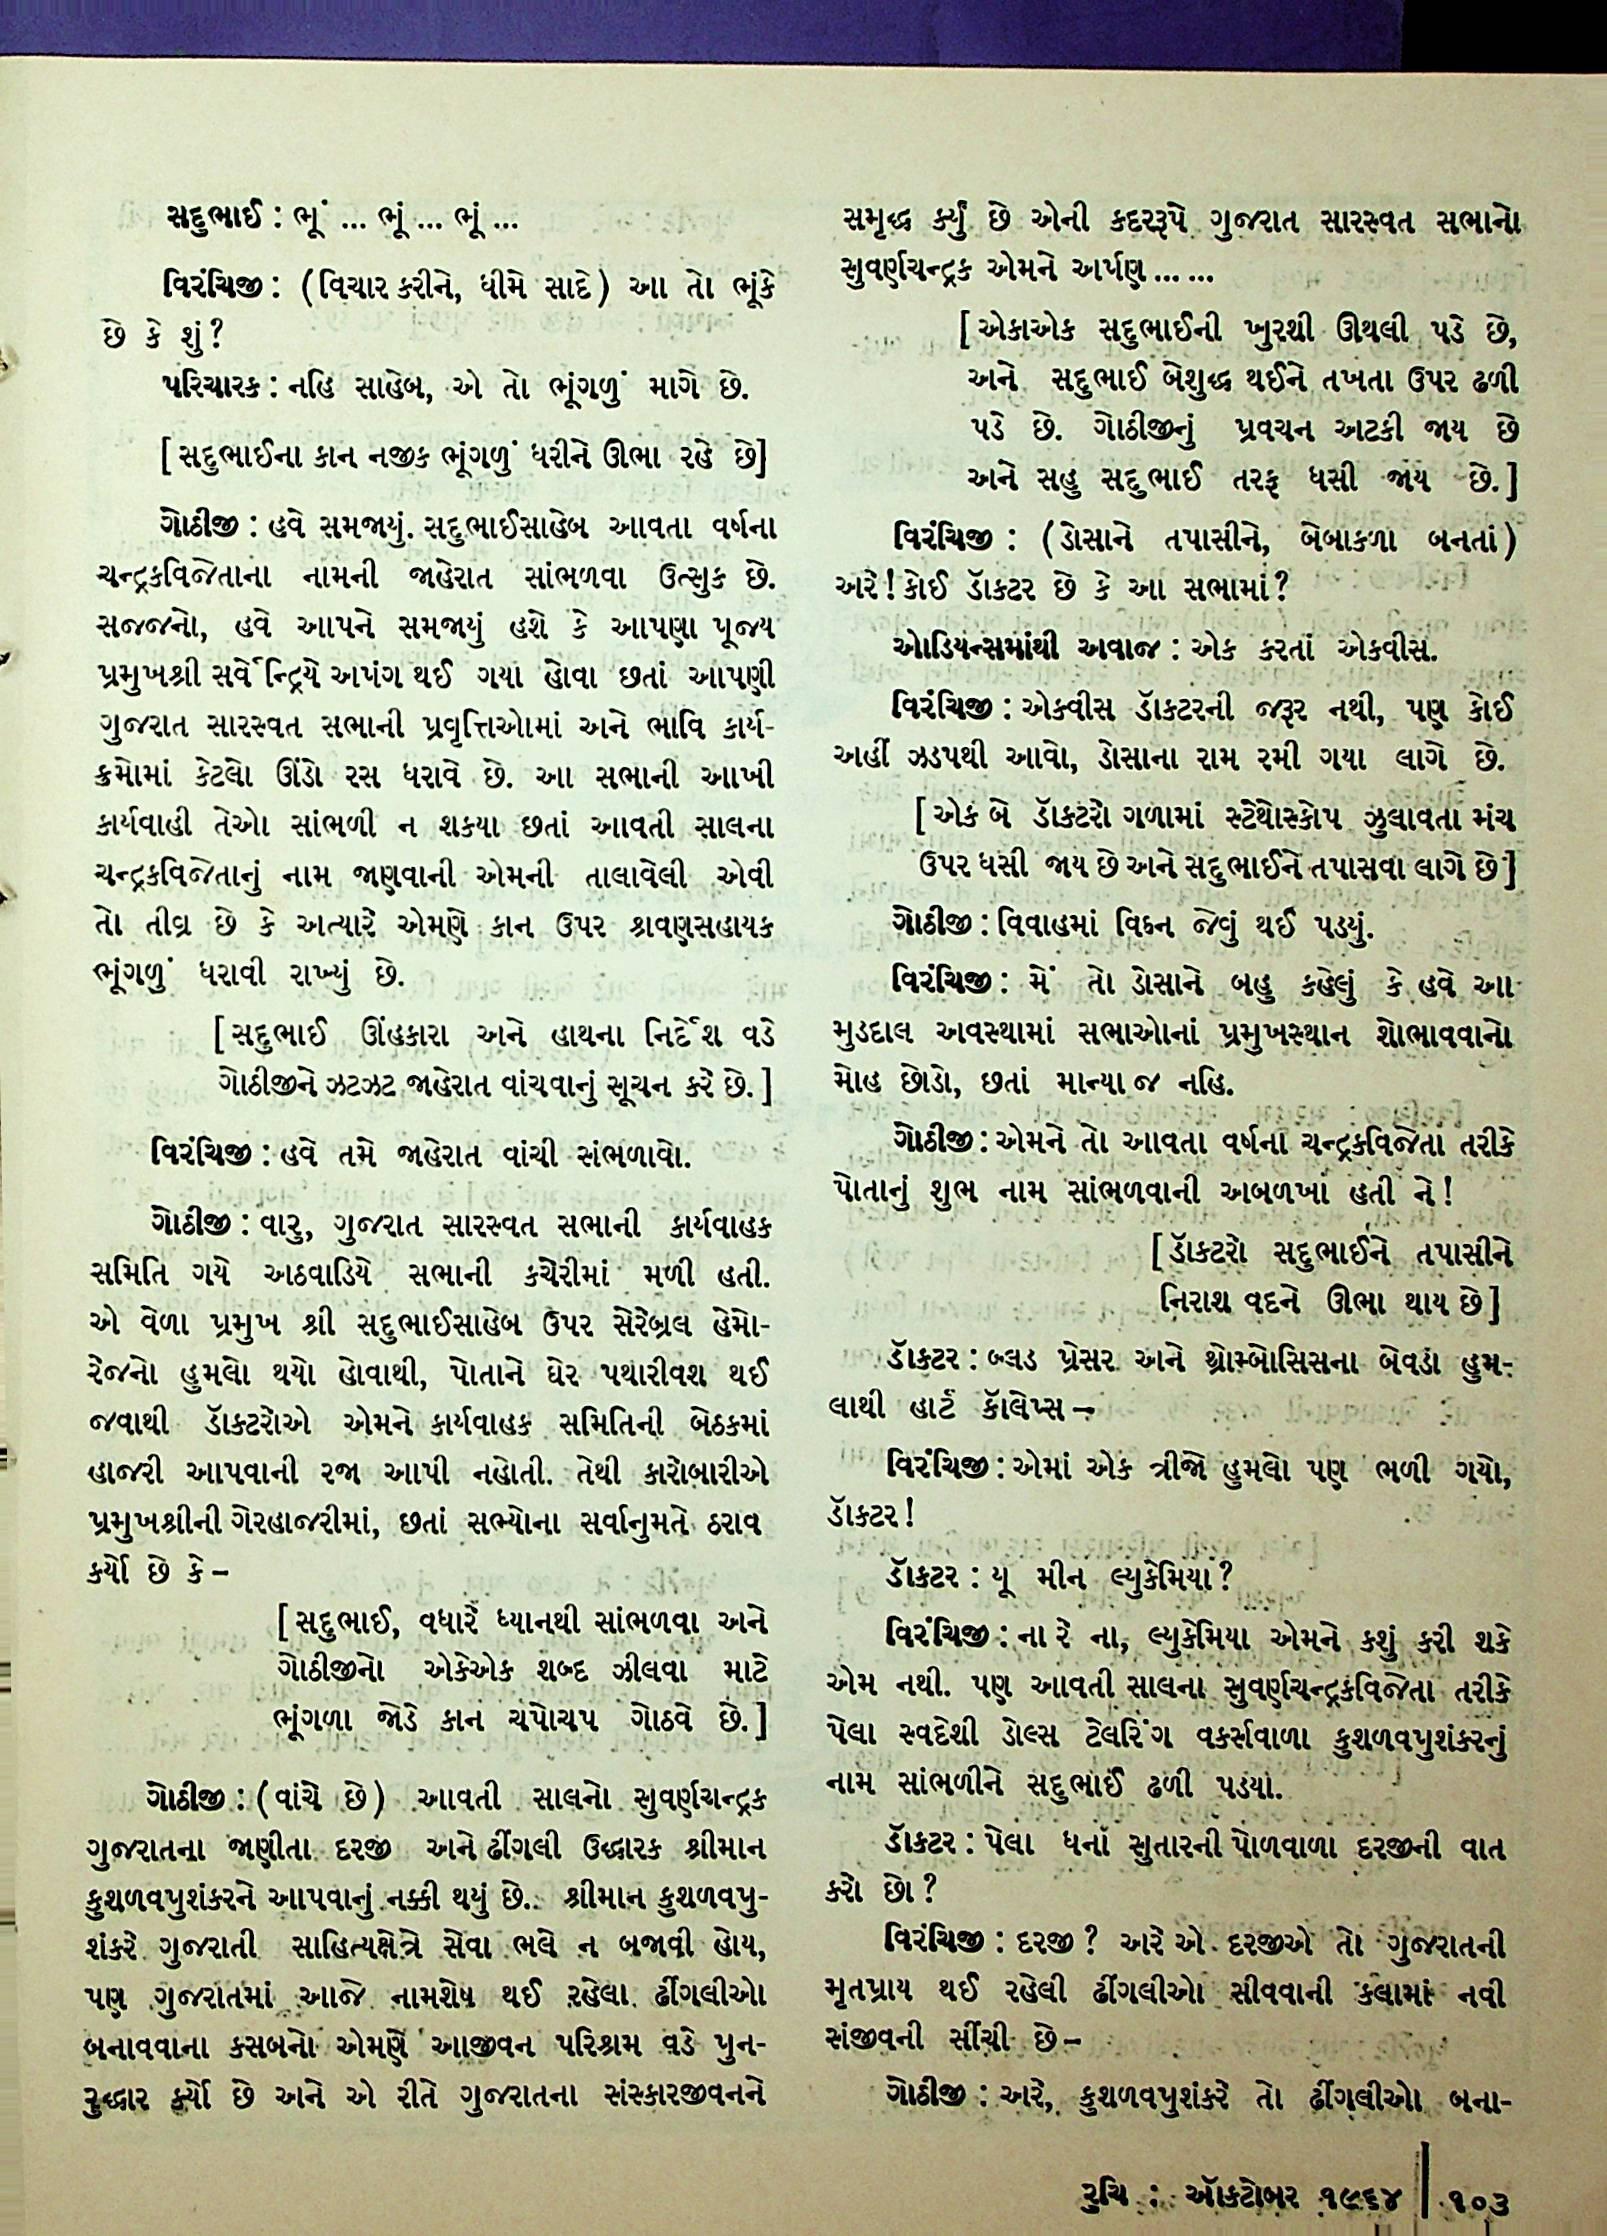 સદુભાઈ : ભૂં ... ભૂં ... ભૂં ...
વિરંચિજી : (વિચાર કરીને, ધીમે સાદે) આ તો ભૂંકે
છે કે શું?
પરિચારક : નહિ સાહેબ, એ તો ભૂંગળું માગે છે.
[સદુભાઈના કાન નજીક ભૂંગળું ધરીને ઊભા રહે છે]
ગોઠીજી : હવે સમજાયું. સદુભાઈસાહેબ આવતા વર્ષના
ચન્દ્રકવિજેતાના નામની જાહેરાત સાંભળવા ઉત્સુક છે.
સજ્જનો, હવે આપને સમજાયું હશે કે આપણા પૂજ્ય
પ્રમુખશ્રી સર્વેન્દ્રિયે અપંગ થઈ ગયા હોવા છતાં આપણી
ગુજરાત સારસ્વત સભાની પ્રવૃત્તિઓમાં અને ભાવિ કાર્ય-
ક્રમોમાં કેટલો ઊંડો રસ ધરાવે છે. આ સભાની આખી
કાર્યવાહી તેઓ સાંભળી ન શક્યા છતાં આવતી સાલના
ચન્દ્રકવિજેતાનું નામ જાણવાની એમની તાલાવેલી એવી
તો તીવ્ર છે કે અત્યારે એમણે કાન ઉપર શ્રવણસહાયક
ભૂંગળું ધરાવી રાખ્યું છે.
[સદુભાઈ ઊંહકારા અને હાથના નિર્દેશ વડે
ગોઠીજીને ઝટઝટ જાહેરાત વાંચવાનું સૂચન કરે છે.]
વિરંચિજી : હવે તમે જાહેરાત વાંચી સંભળાવો.
ગોઠીજી : વારુ, ગુજરાત સારસ્વત સભાની કાર્યવાહક
સમિતિ ગયે અઠવાડિયે સભાની કચેરીમાં મળી હતી.
એ વેળા પ્રમુખ શ્રી સદુભાઈસાહેબ ઉપર સેરેબ્રલ હેમો-
રેજનો હુમલો થયો હોવાથી, પોતાને ઘેર પથારીવશ થઈ
જવાથી ડૉક્ટરોએ એમને કાર્યવાહક સમિતિની બેઠકમાં
હાજરી આપવાની રજા આપી નહોતી. તેથી કારોબારીએ
પ્રમુખશ્રીની ગેરહાજરીમાં, છતાં સભ્યોના સર્વાનુમતે ઠરાવ
કર્યો છે કે –
[સદુભાઈ, વધારે ધ્યાનથી સાંભળવા અને
ગોઠીજીનો એકેએક શબ્દ ઝીલવા માટે
ભૂંગળા જોડે કાન ચપોચપ ગોઠવે છે.]
ગોઠીજી : (વાંચે છે) આવતી સાલનો સુવર્ણચન્દ્રક
ગુજરાતના જાણીતા દરજી અને ઢીંગલી ઉદ્ધારક શ્રીમાન
કુશળવપુશંકરને આપવાનું નક્કી થયું છે. શ્રીમાન કુશળવપુ-
શંકરે ગુજરાતી સાહિત્યક્ષેત્રે સેવા ભલે ન બજાવી હોય,
પણ ગુજરાતમાં આજે નામશેષ થઈ રહેલા ઢીંગલીઓ
બનાવવાના કસબનો એમણે આજીવન પરિશ્રમ વડે પુન-
રુદ્ધાર કર્યો છે અને એ રીતે ગુજરાતના સંસ્કારજીવનને
સમૃદ્ધ કર્યું છે એની કદરરૂપે ગુજરાત સારસ્વત સભાનો
સુવર્ણચન્દ્રક એમને અર્પણ ... ...
[એકાએક સદુભાઈની ખુરશી ઊથલી પડે છે,
અને સદુભાઈ બેશુદ્ધ થઈને તખતા ઉપર ઢળી
પડે છે. ગોઠીજીનું પ્રવચન અટકી જાય છે
અને સહુ સદુભાઈ તરફ ધસી જાય છે.]
વિરંચિજી : (ડોસાને તપાસીને, બેબાકળા બનતાં)
અરે! કોઈ ડૉક્ટર છે કે આ સભામાં?
ઓડિયન્સમાંથી અવાજ : એક કરતાં એકવીસ.
વિરંચિજી : એકવીસ ડૉક્ટરની જરૂર નથી, પણ કોઈ
અહીં ઝડપથી આવો, ડોસાના રામ રમી ગયા લાગે છે.
[એક બે ડૉક્ટરો ગળામાં સ્ટેથોસ્કોપ ઝુલાવતા મંચ
ઉપર ધસી જાય છે અને સદુભાઈને તપાસવા લાગે છે]
ગોઠીજી : વિવાહમાં વિઘ્ન જેવું થઈ પડયું.
વિરંચિજી : મેં તો ડોસાને બહુ કહેલું કે હવે આ
મુડદાલ અવસ્થામાં સભાઓનાં પ્રમુખસ્થાન શોભાવવાનો
મોહ છોડો, છતાં માન્યા જ નહિ.
ગોઠીજી : એમને તો આવતા વર્ષના ચન્દ્રકવિજેતા તરીકે
પોતાનું શુભ નામ સાંભળવાની અબળખા હતી ને!
[ડૉક્ટરો સદુભાઈને તપાસીને
નિરાશ વદને ઊભા થાય છે]
ડૉક્ટર : બ્લડ પ્રેસર અને થ્રોમ્બોસિસના બેવડા હુમ-
લાથી હાર્ટ કૉલેપ્સ –
વિરંચિજી : એમાં એક ત્રીજો હુમલો પણ ભળી ગયો,
ડૉક્ટર!
ડૉક્ટર : યૂ મીન લ્યુકેમિયા?
વિરંચિજી : ના રે ના, લ્યુકેમિયા એમને કશું કરી શકે
એમ નથી. પણ આવતી સાલના સુવર્ણચન્દ્રકવિજેતા તરીકે
પેલા સ્વદેશી ડોલ્સ ટેલરિંગ વર્ક્સવાળા કુશળવપુશંકરનું
નામ સાંભળીને સદુભાઈ ઢળી પડયા.
ડૉક્ટર : પેલા ધના સુતારની પોળવાળા દરજીની વાત
કરો છો?
વિરંચિજી : દરજી? અરે એ દરજીએ તો ગુજરાતની
મૃતપ્રાય થઈ રહેલી ઢીંગલીઓ સીવવાની કલામાં નવી
સંજીવની સીંચી છે –
ગોઠીજી : અરે, કુશળવપુશંકરે તો ઢીંગલીઓ બના-
રુચિ : ઑક્ટોબર ૧૯૬૪ | ૧૦૩